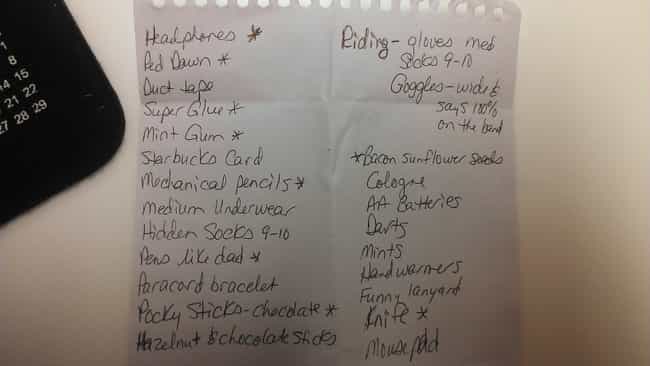 Headphones *
Red Dawn *
Duct tape
Super Glue *
Mint Gum *
Starbucks Card
Mechanical pencils *
Medium Underwear
Hidden Socks 9-10
Pens like dad *
Paracord bracelet
Pocky Sticks-chocolate *
Hazelnut & chocolate sticks
Riding- gloves med
Socks 9-10
Goggles-wide &
says 100%
on the band
*Bacon sunflower seeds
Cologne
AA Batteries
Darts
Mints
Handwarmers
Funny lanyard
Knife *
Mousepad
1
7 8
14 15
21 22
27 28 29